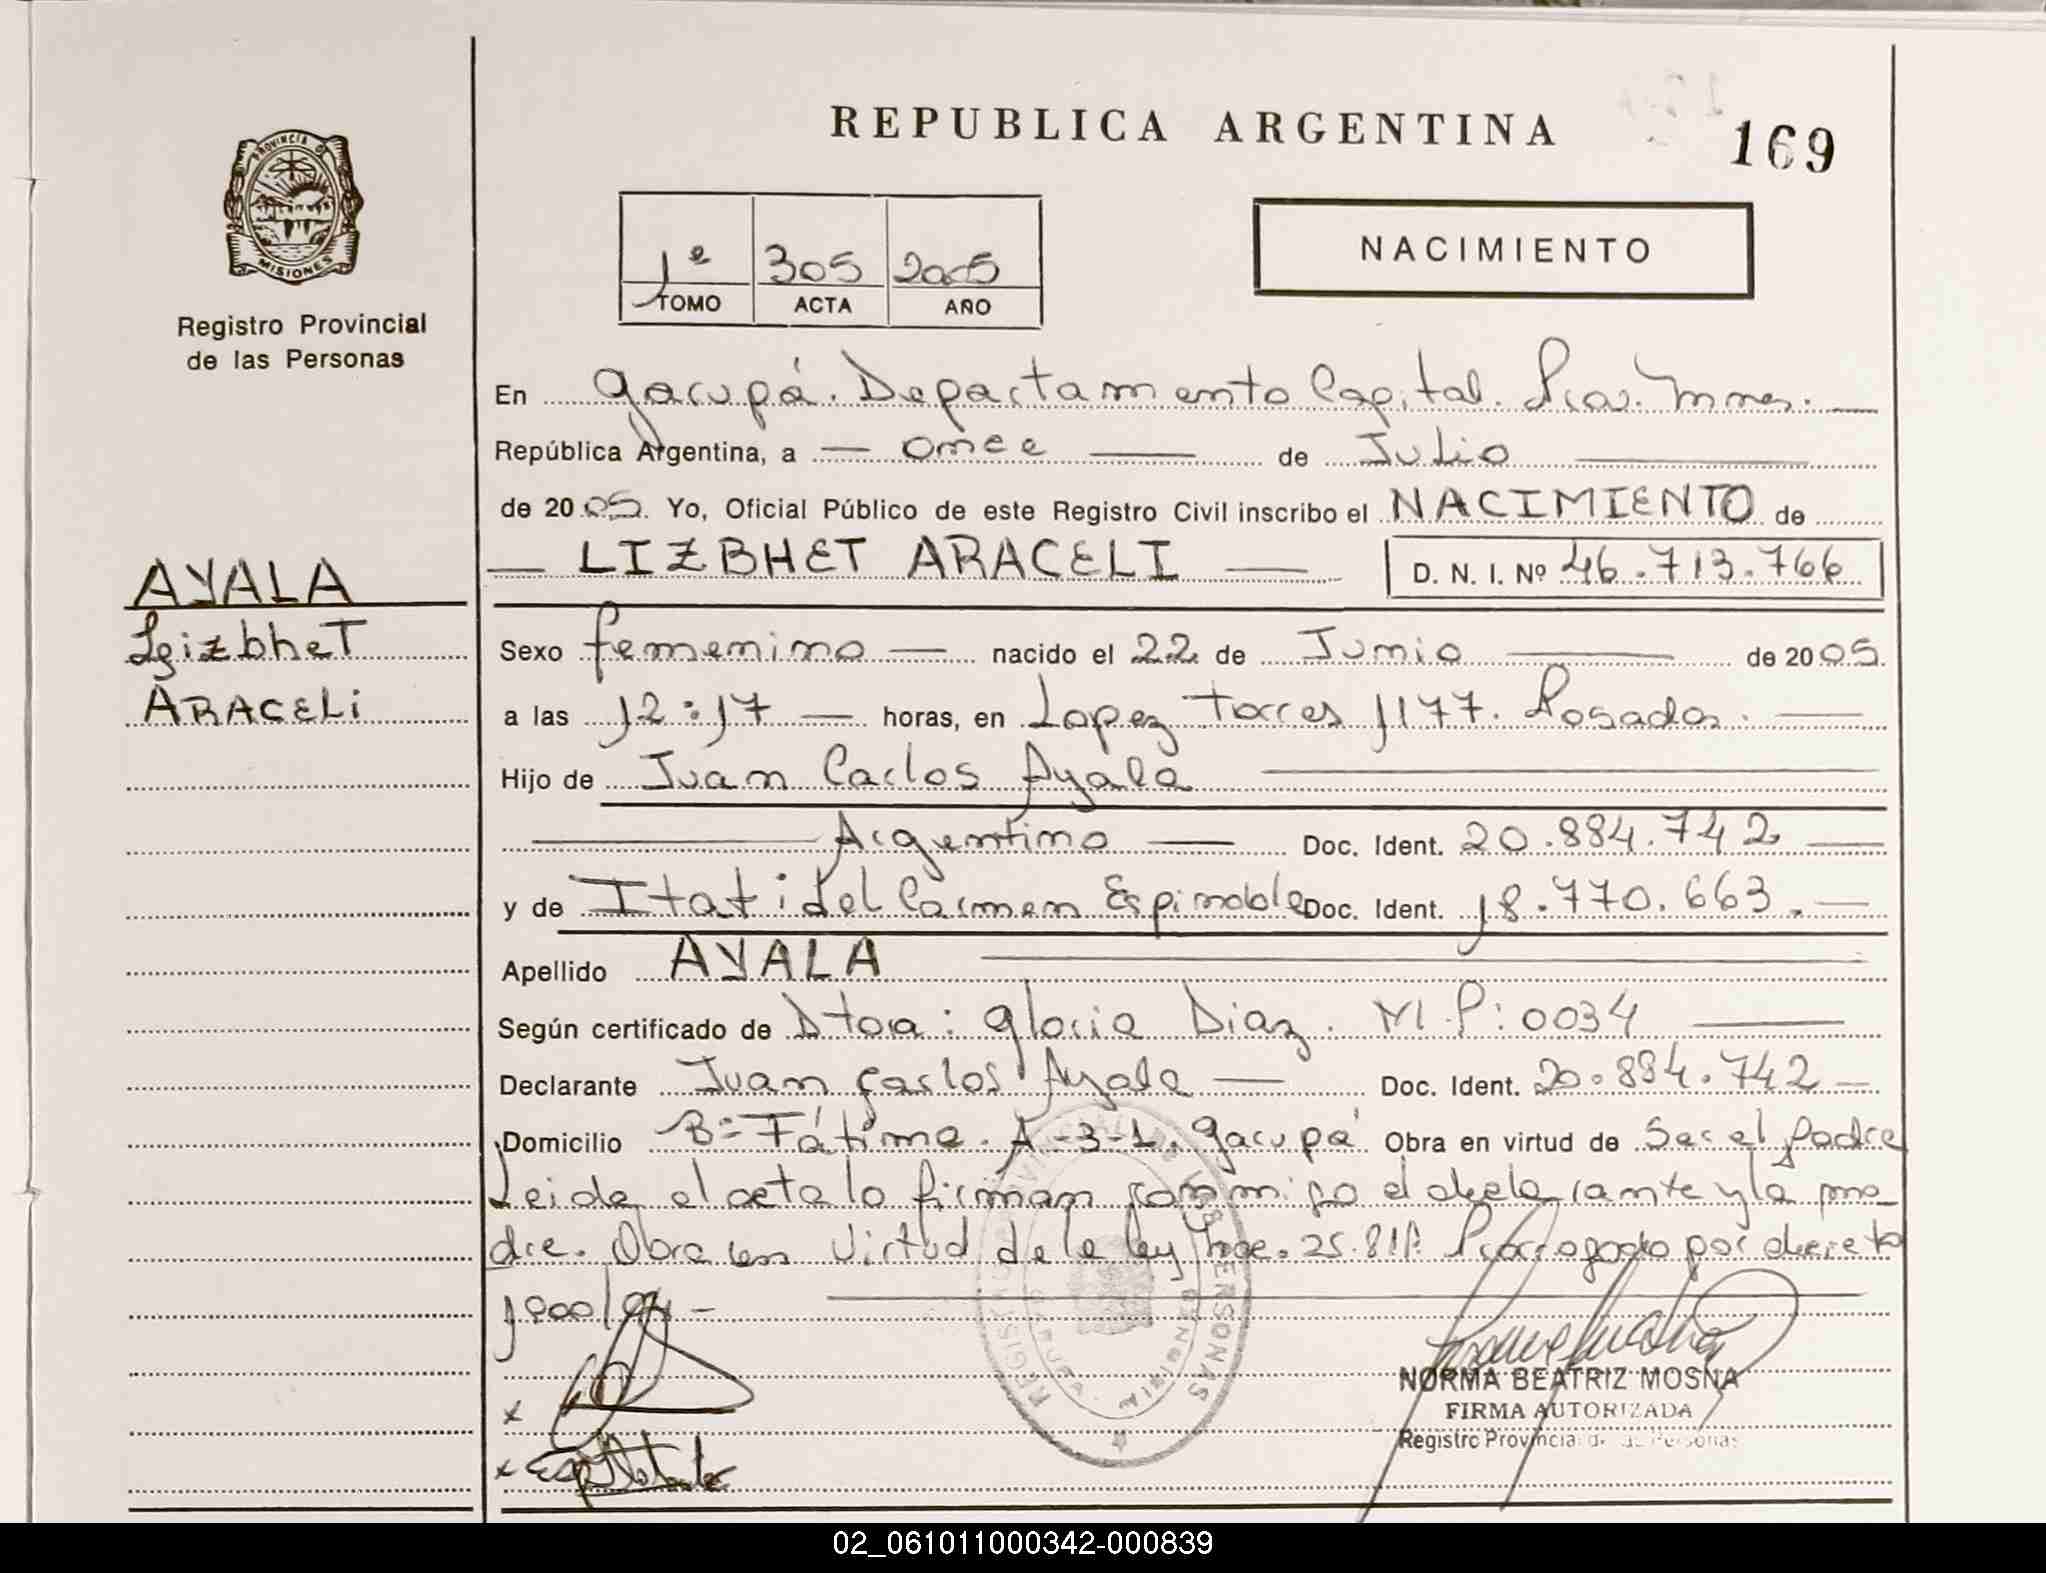 REPUBLICA ARGENTINA
169
PROVINCIA D
MISIONES
Registro Provincial
de las Personas
1º 305 2005
TOMO ACTA AÑO
NACIMIENTO
En Garupá. Departamento Capital. Pcia. Mnes.
República Argentina, a — once — de Julio
de 2005. Yo, Oficial Público de este Registro Civil inscribo el NACIMIENTO de
— LIZBHET ARACELI — D. N. I. Nº 46.713.766
AYALA
Lizbhet
ARACELi
Sexo femenino — nacido el 22 de Junio — de 2005.
a las 12:17 — horas, en Lopez Torres 1177. Posadas. —
Hijo de Juan Carlos Ayala
— Argentino — Doc. Ident. 20.884.742 —
y de Itati del Carmen Espindola Doc. Ident. 18.770.663. —
Apellido AYALA
Según certificado de Dtora: Gloria Diaz. M.P: 0034 —
Declarante Juan Carlos Ayala — Doc. Ident. 20.884.742 —
Domicilio Bº Fátima. A-3-1. Garupá Obra en virtud de Ser el padre
Leida el acta lo firman conmigo el declarante y la ma-
dre. Obra en virtud de la ley Nro. 25.819. Prorrogado por decreto
/04 -
REGISTRO PROVINCIAL DE LAS PERSONAS
GARUPA
NORMA BEATRIZ MOSNA
FIRMA AUTORIZADA
Registro Provincial de las Personas
02_061011000342-000839